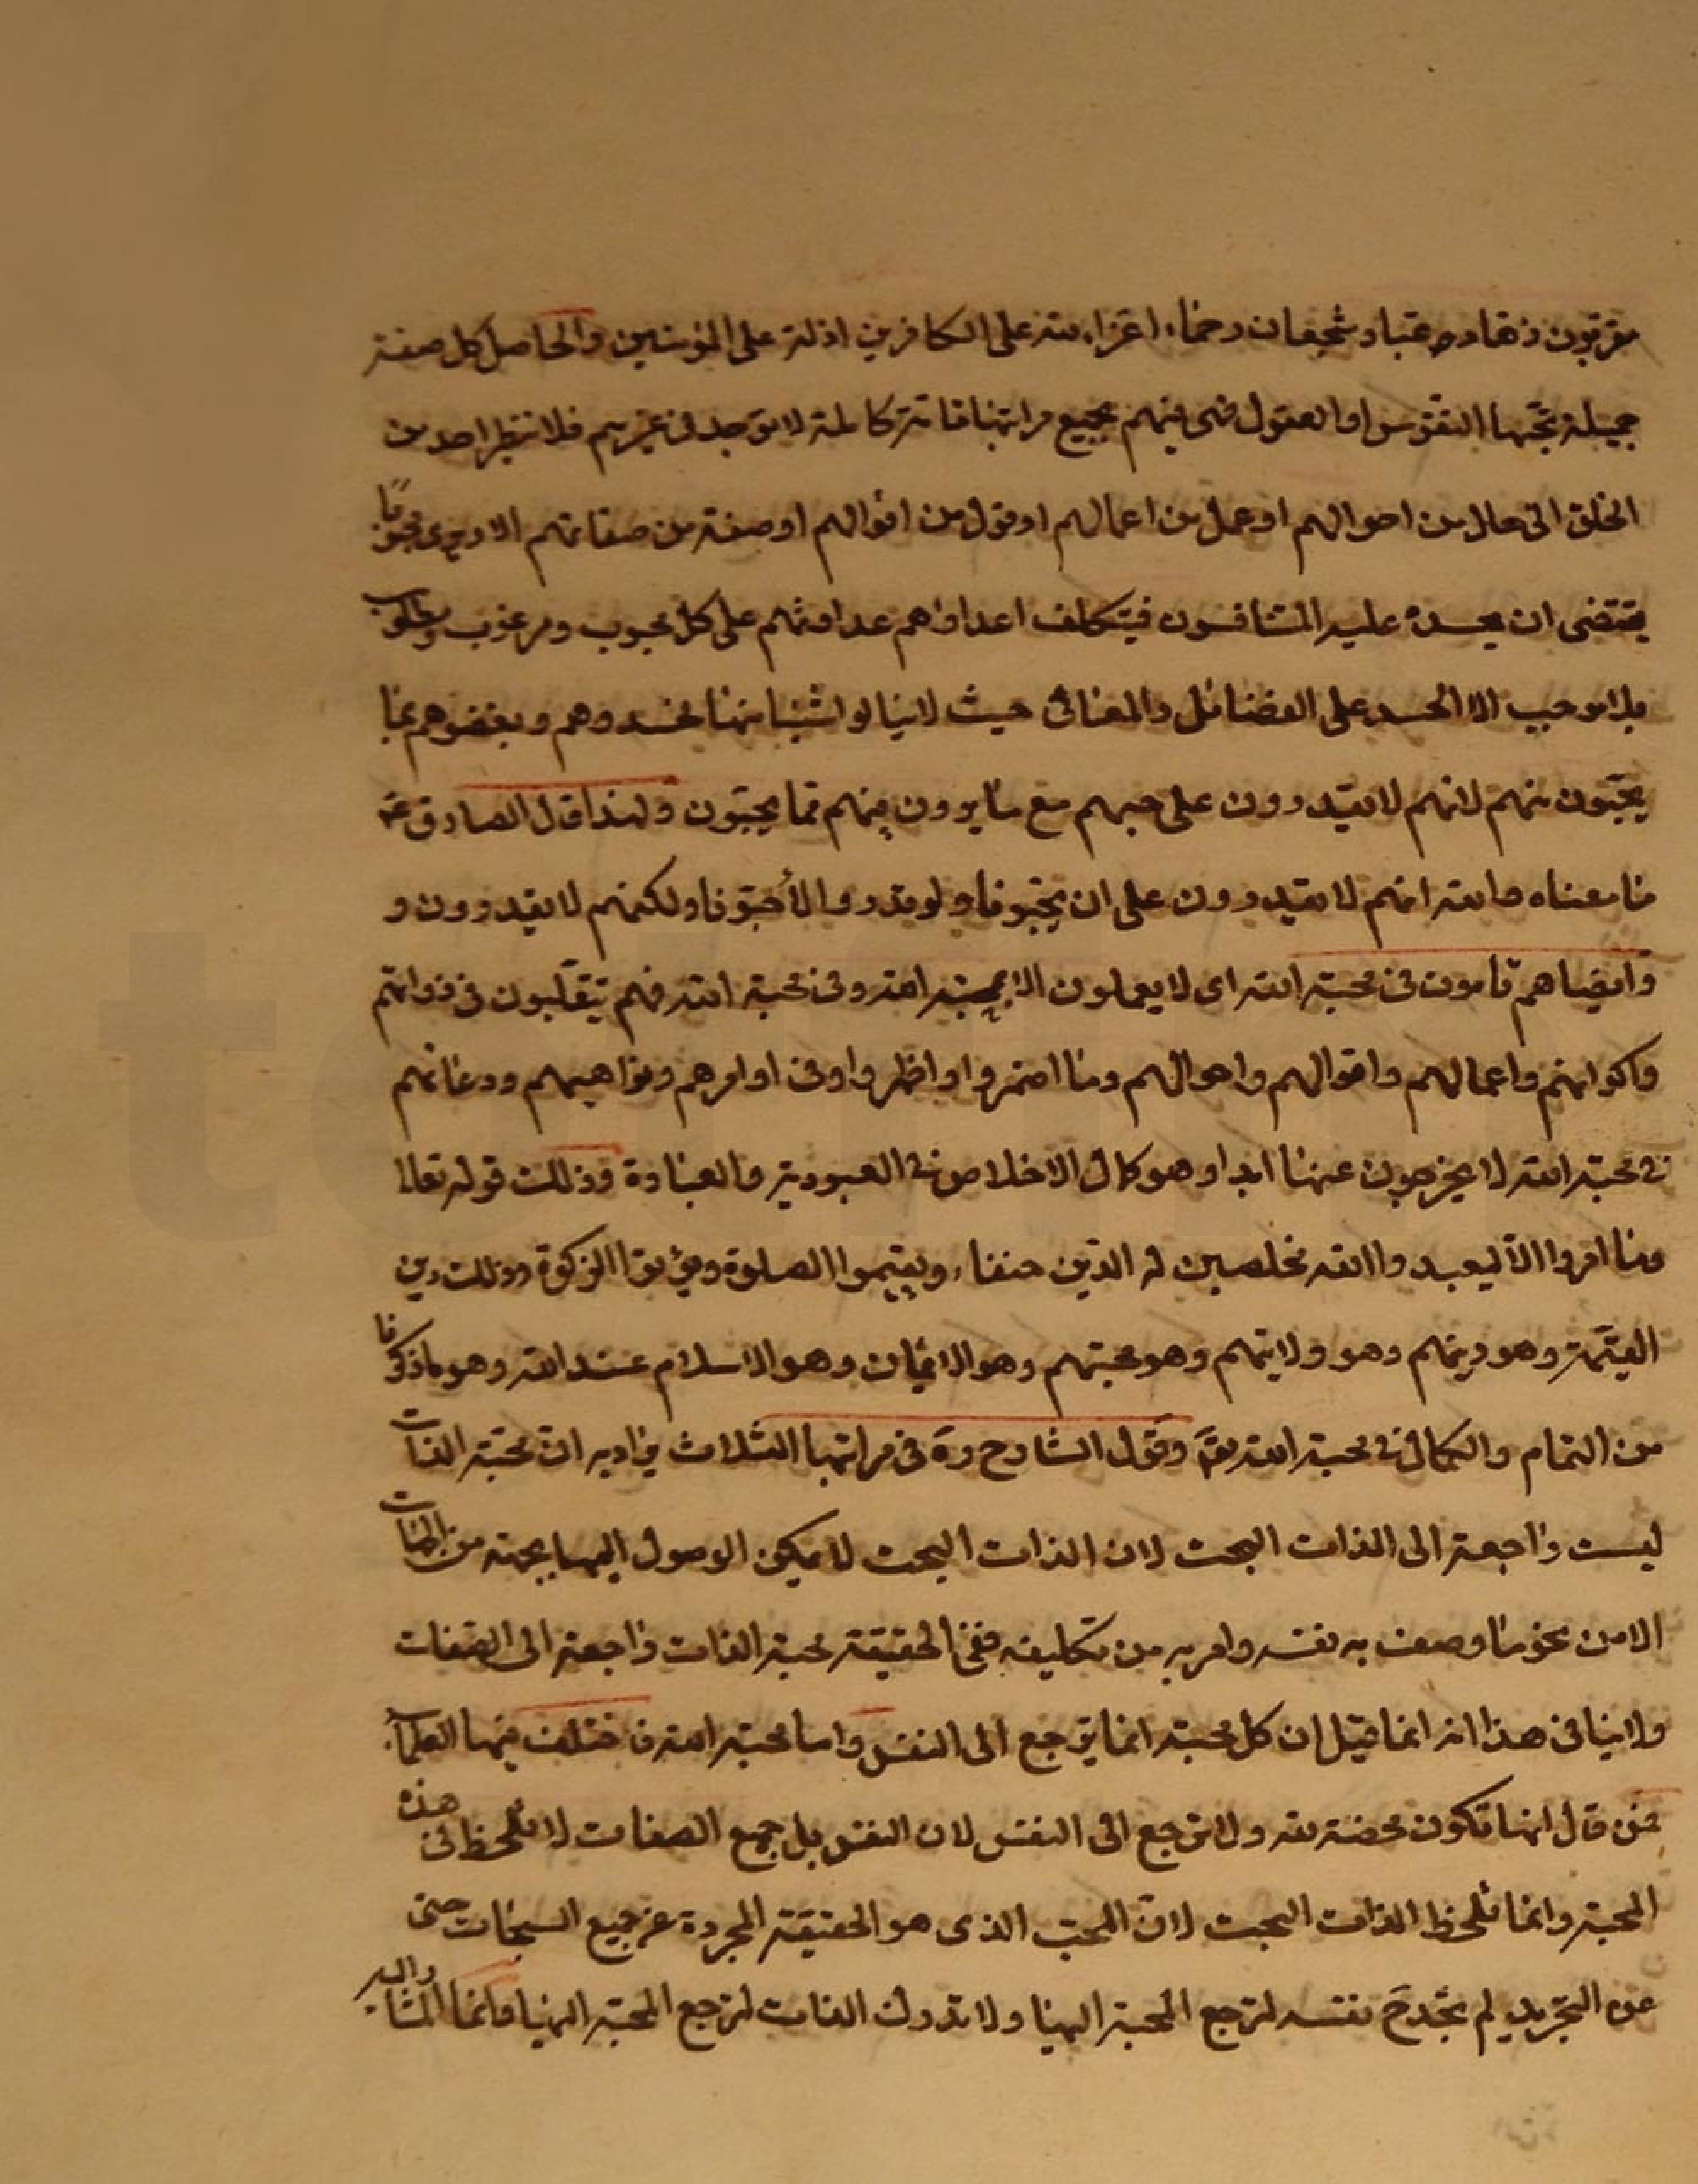 مقربون زهاد و عباد شجعان رحماء اعزاء لله على الكافرين اذلة على المؤمنين والحاصل كل صفة
جميلة تحبها النفوس او العقول فهى فيهم بجميع مراتبها تامة كاملة لا توجد فى غيرهم فلا ينظر احد من
الخلق الى حال من احوالهم او عمل من اعمالهم او قول من اقوالهم او صفة من صفاتهم الا ويرى محبوبًا
يقتضى ان يحسده عليه المنافسون فيتكلف اعداؤهم عداوتهم على كل محبوب ومرغوب ومطلوب
بلا موجب الا الحسد على الفضائل والمعنائى حيث لا ينالوا شيئا منها فحسدوهم وبغضوهم بما
يحبّون منهم لانهم لا يقدرون على حبهم مع ما يرون فيهم مما يحبّون ولهذا قال الصادق عه
ما معناه والله انهم لا يقدرون على ان يحبّونا ولو قدروا لأحبّونا ولكنهم لا يقدرون و
وايضا هم تامون فى محبة الله اى لا يعملون الا بمحبة الله وفى محبة الله فهم يتقلّبون فى ذواتهم
واكوانهم واعمالهم واقوالهم واحوالهم وما اضمروا او اظهروا وفى اوامرهم ونواهيهم ودعاتهم
فى محبة الله لا يخرجون عنها ابدا وهو كمال الاخلاص فى العبودية والعبادة وذلك قوله تعالى
وما امروا الّا ليعبدوا الله مخلصين له الدّين حنفاء ويقيموا الصلوة ويؤتوا الزكوة وذلك دين
القيّمة وهو دينهم وهو ولايتهم وهو محبتهم وهو الايمان وهو الاسلام عند الله وهو ما ذكرنا
من التمام والكمال فى محبة الله تعَ وقول الشارح ره فى مراتبها الثلاث يراد به انّ محبّة الذات
ليست راجعة الى الذات البحت لان الذات البحت لا يمكن الوصول اليها بجهة من الجهات
الا من نحو ما وصف به نفسه وامر به من تكاليفه ففى الحقيقة محبة الذات راجعة الى الصفات
ولا ينافى هذا انه انما قيل ان كل محبة انما ترجع الى النفس واما محبة الله فاختلف فيها العلماء
فمن قال انها تكون محضة لله ولا ترجع الى النفس لان النفس بل جميع الصفات لا تلحظ فى هذه
المحبة وانما تلحظ الذات البحت لانّ المحب الذى هو الحقيقة المجردة عن جميع السبحات حتى
عن التجريد لم يجد حَ نفسه لترجع المحبة اليها ولا تدرك الذات لترجع المحبة اليها وانما المشار اليه